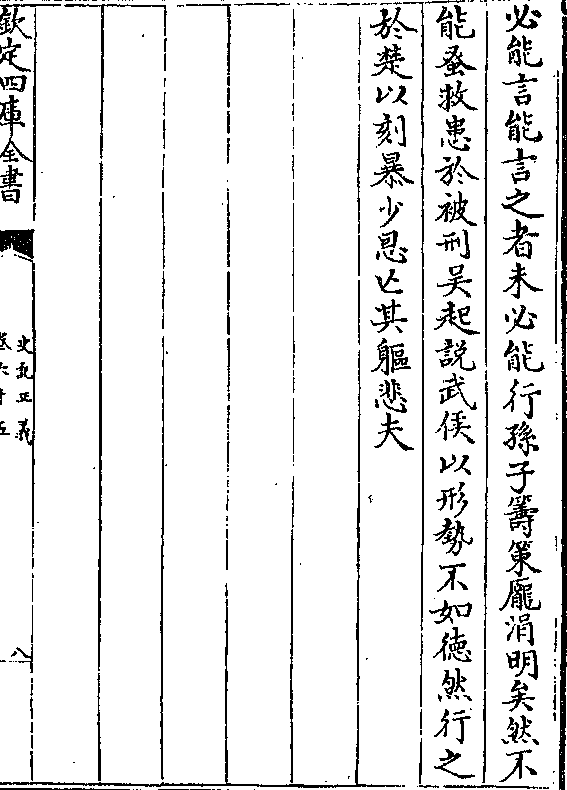 必能言能言之者未必能行孫子籌策龐涓明矣然不
能蚤救患於被刑吴起説武侯以形勢不如徳然行之
於楚以刻暴少恩亡其軀悲夫
欽定四庫全書
史記正義
卷六十五
八